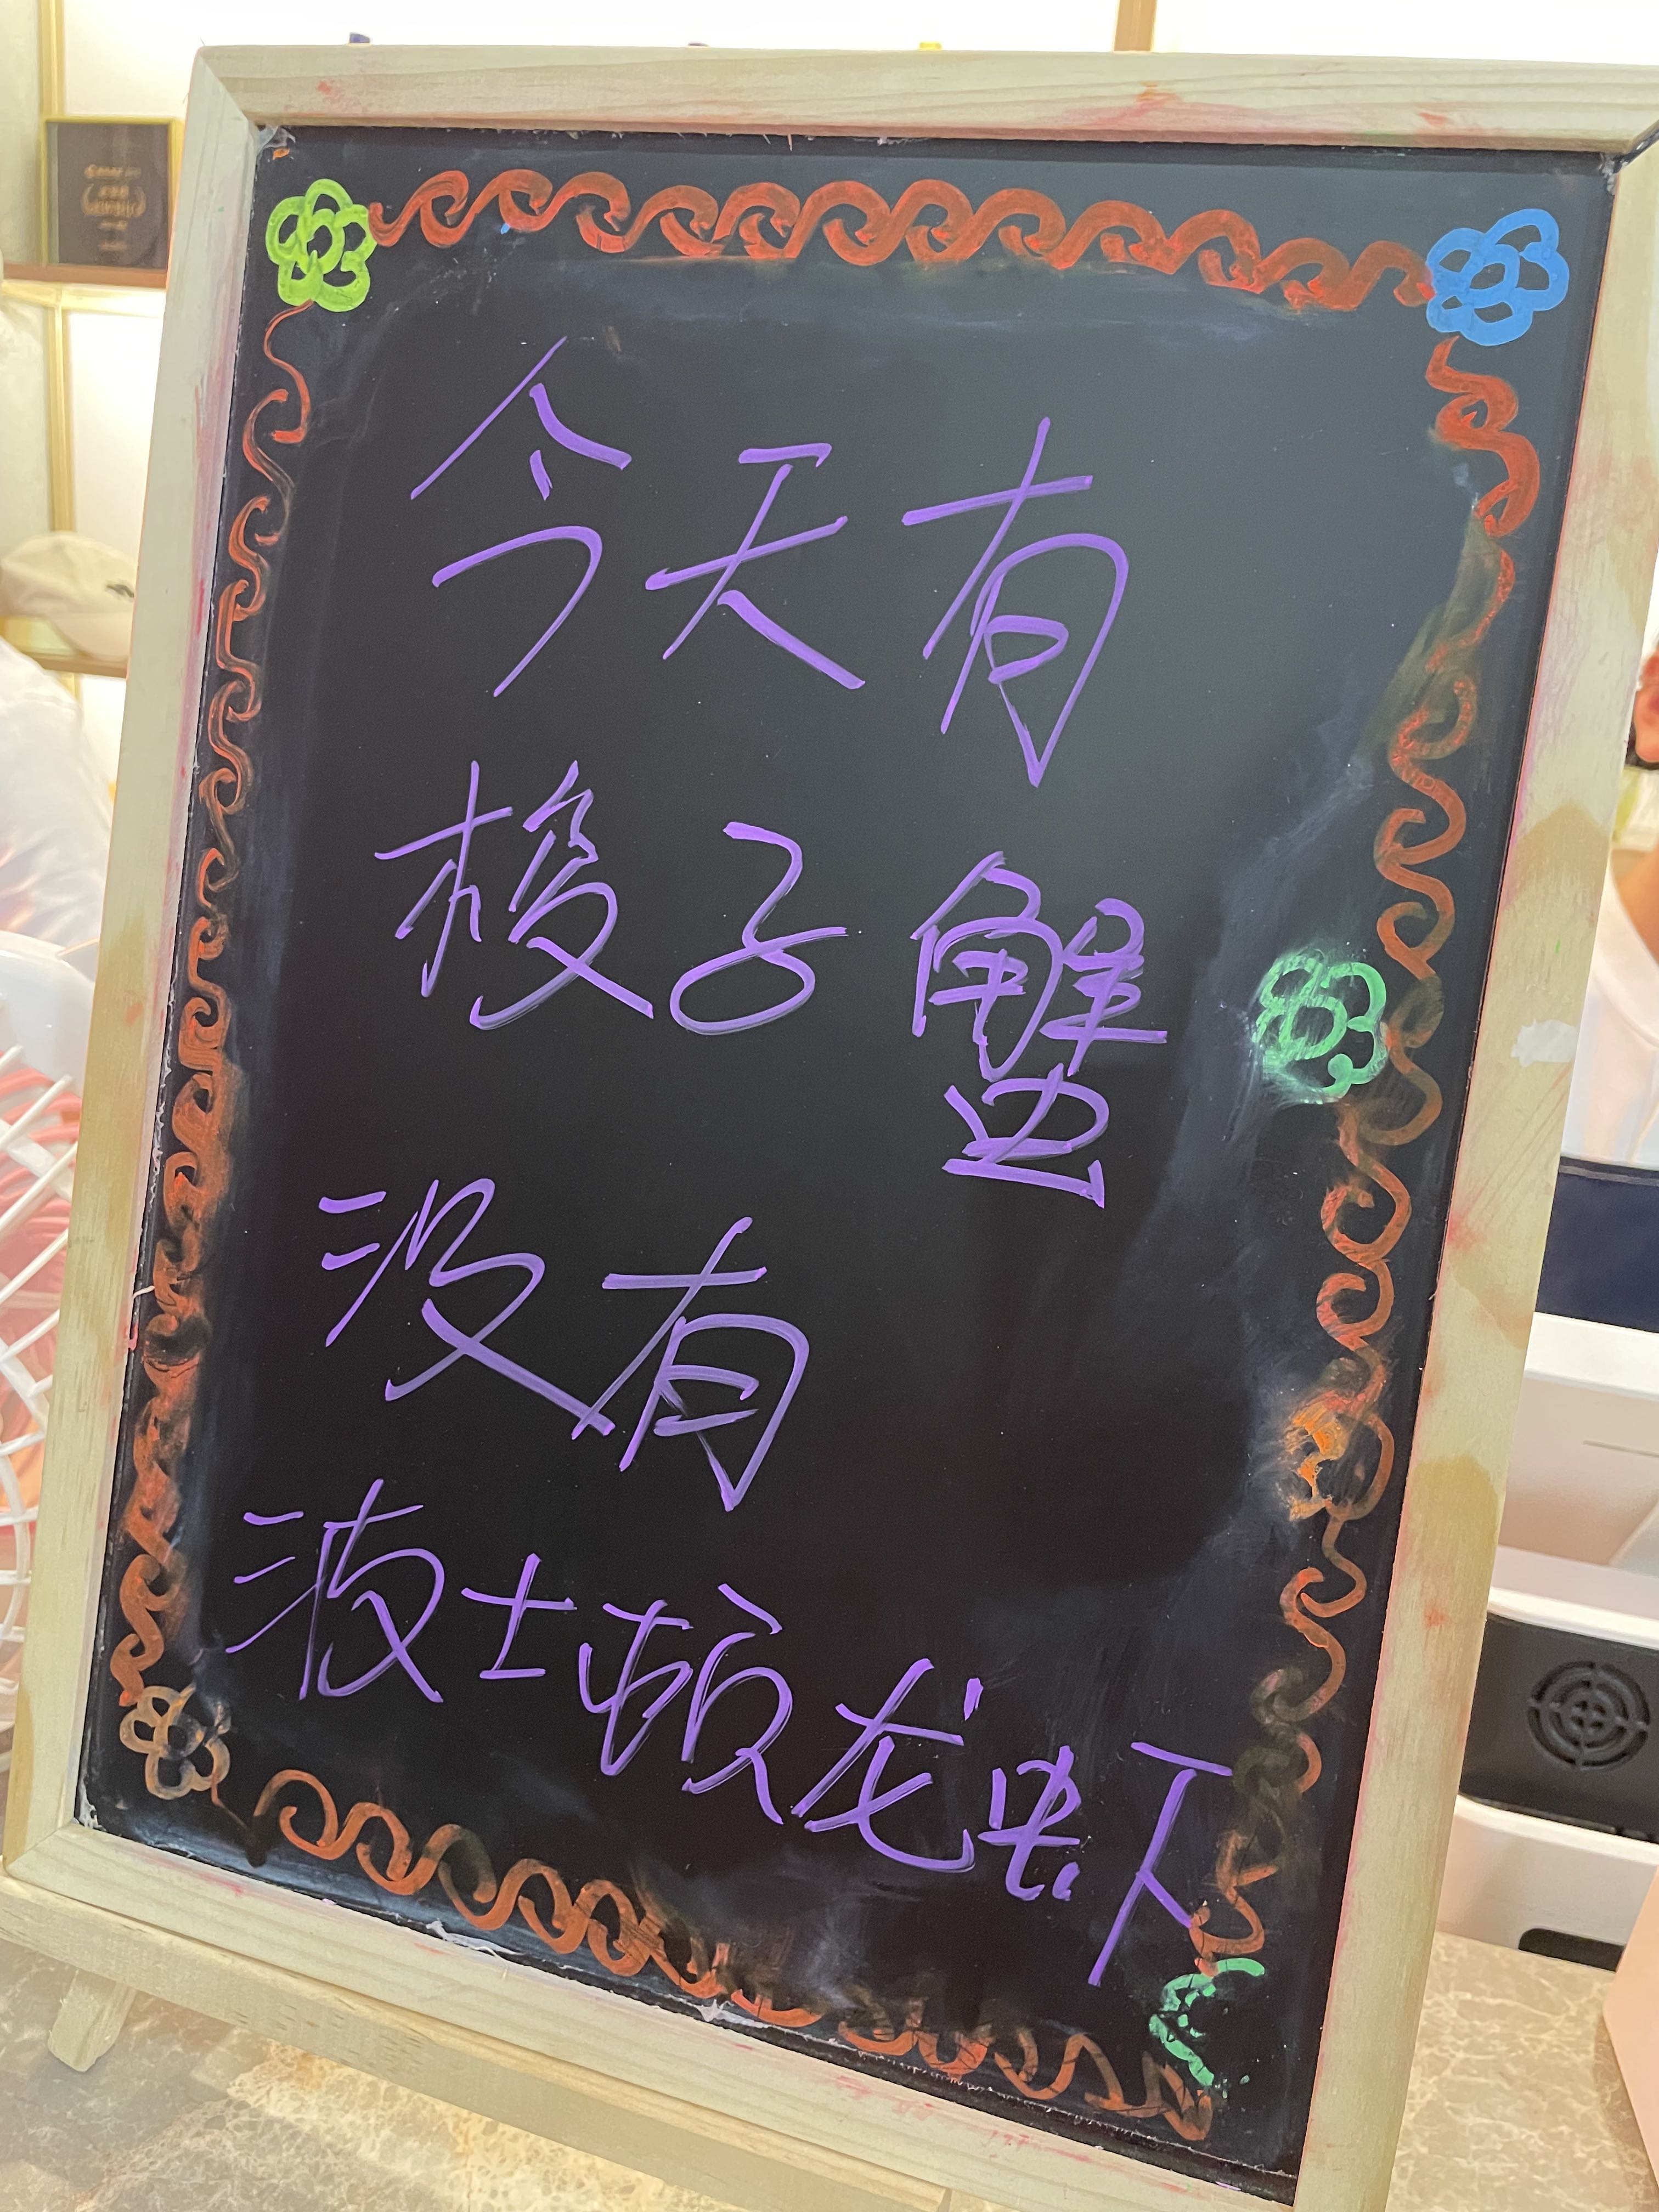 今天有
梭子蟹
没有
波士顿龙虾